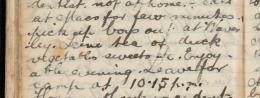 dentist not at home. Call
at Spaco for few minutes.
pick up boys out at Waver
ley. Fine tea of duck
vegetables sweets etc. Enjoy-
able evening. Leave for
camp at 10.15 p.m.